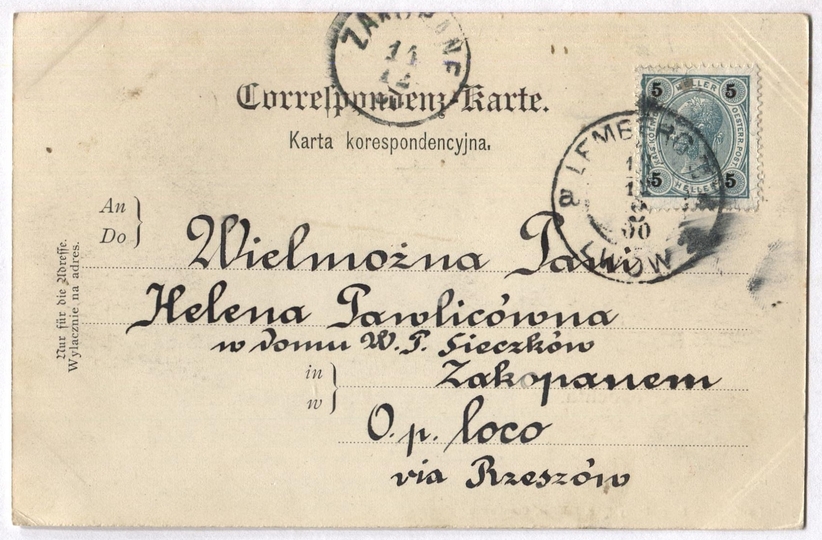 ZAKOPANE
14
Correspondenz-Karte.
Karta korespondencyjna.
5 HELLER 5
OESTERR. POST.
5 HELLER 5
LEMBERG
00
LWÓW
An
Do
Wielmożna Pani
Helena Pawlicówna
w domu W. P. Sieczków
in
w
Zakopanem
O. p. loco
via Rzeszów
Nur für die Adresse.
Wyłącznie na adres.